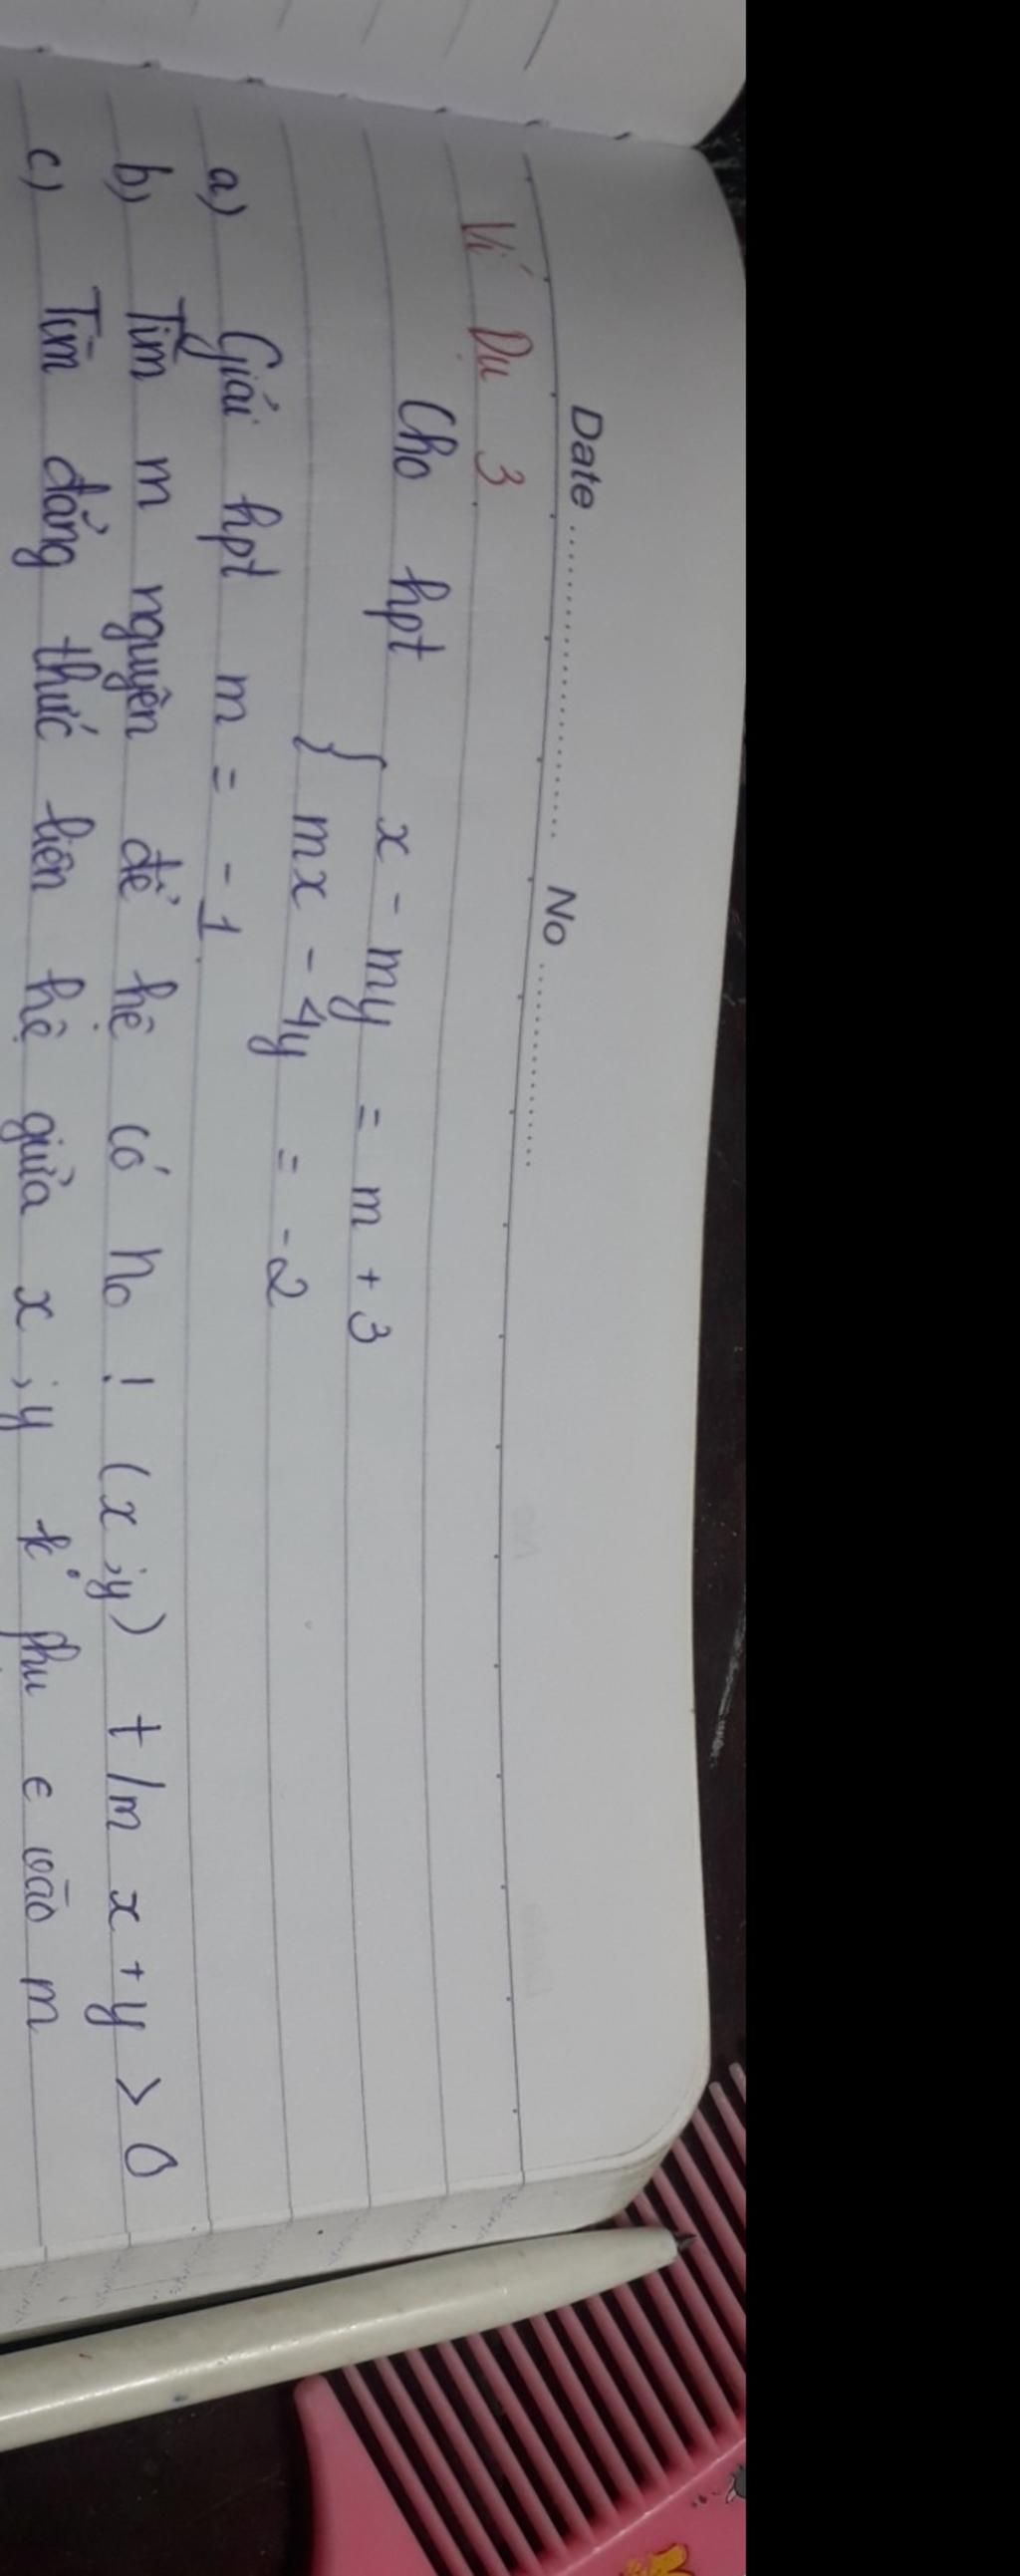 Date ........................ No ................
Ví Dụ 3
Cho hpt { x - my = m + 3
mx - 4y = -2
a) Giải hpt m = -1
b) Tìm m nguyên để hệ có n0 ! (x;y) t/m x + y > 0
c) Tìm đẳng thức liên hệ giữa x;y k° phụ ϵ vào m